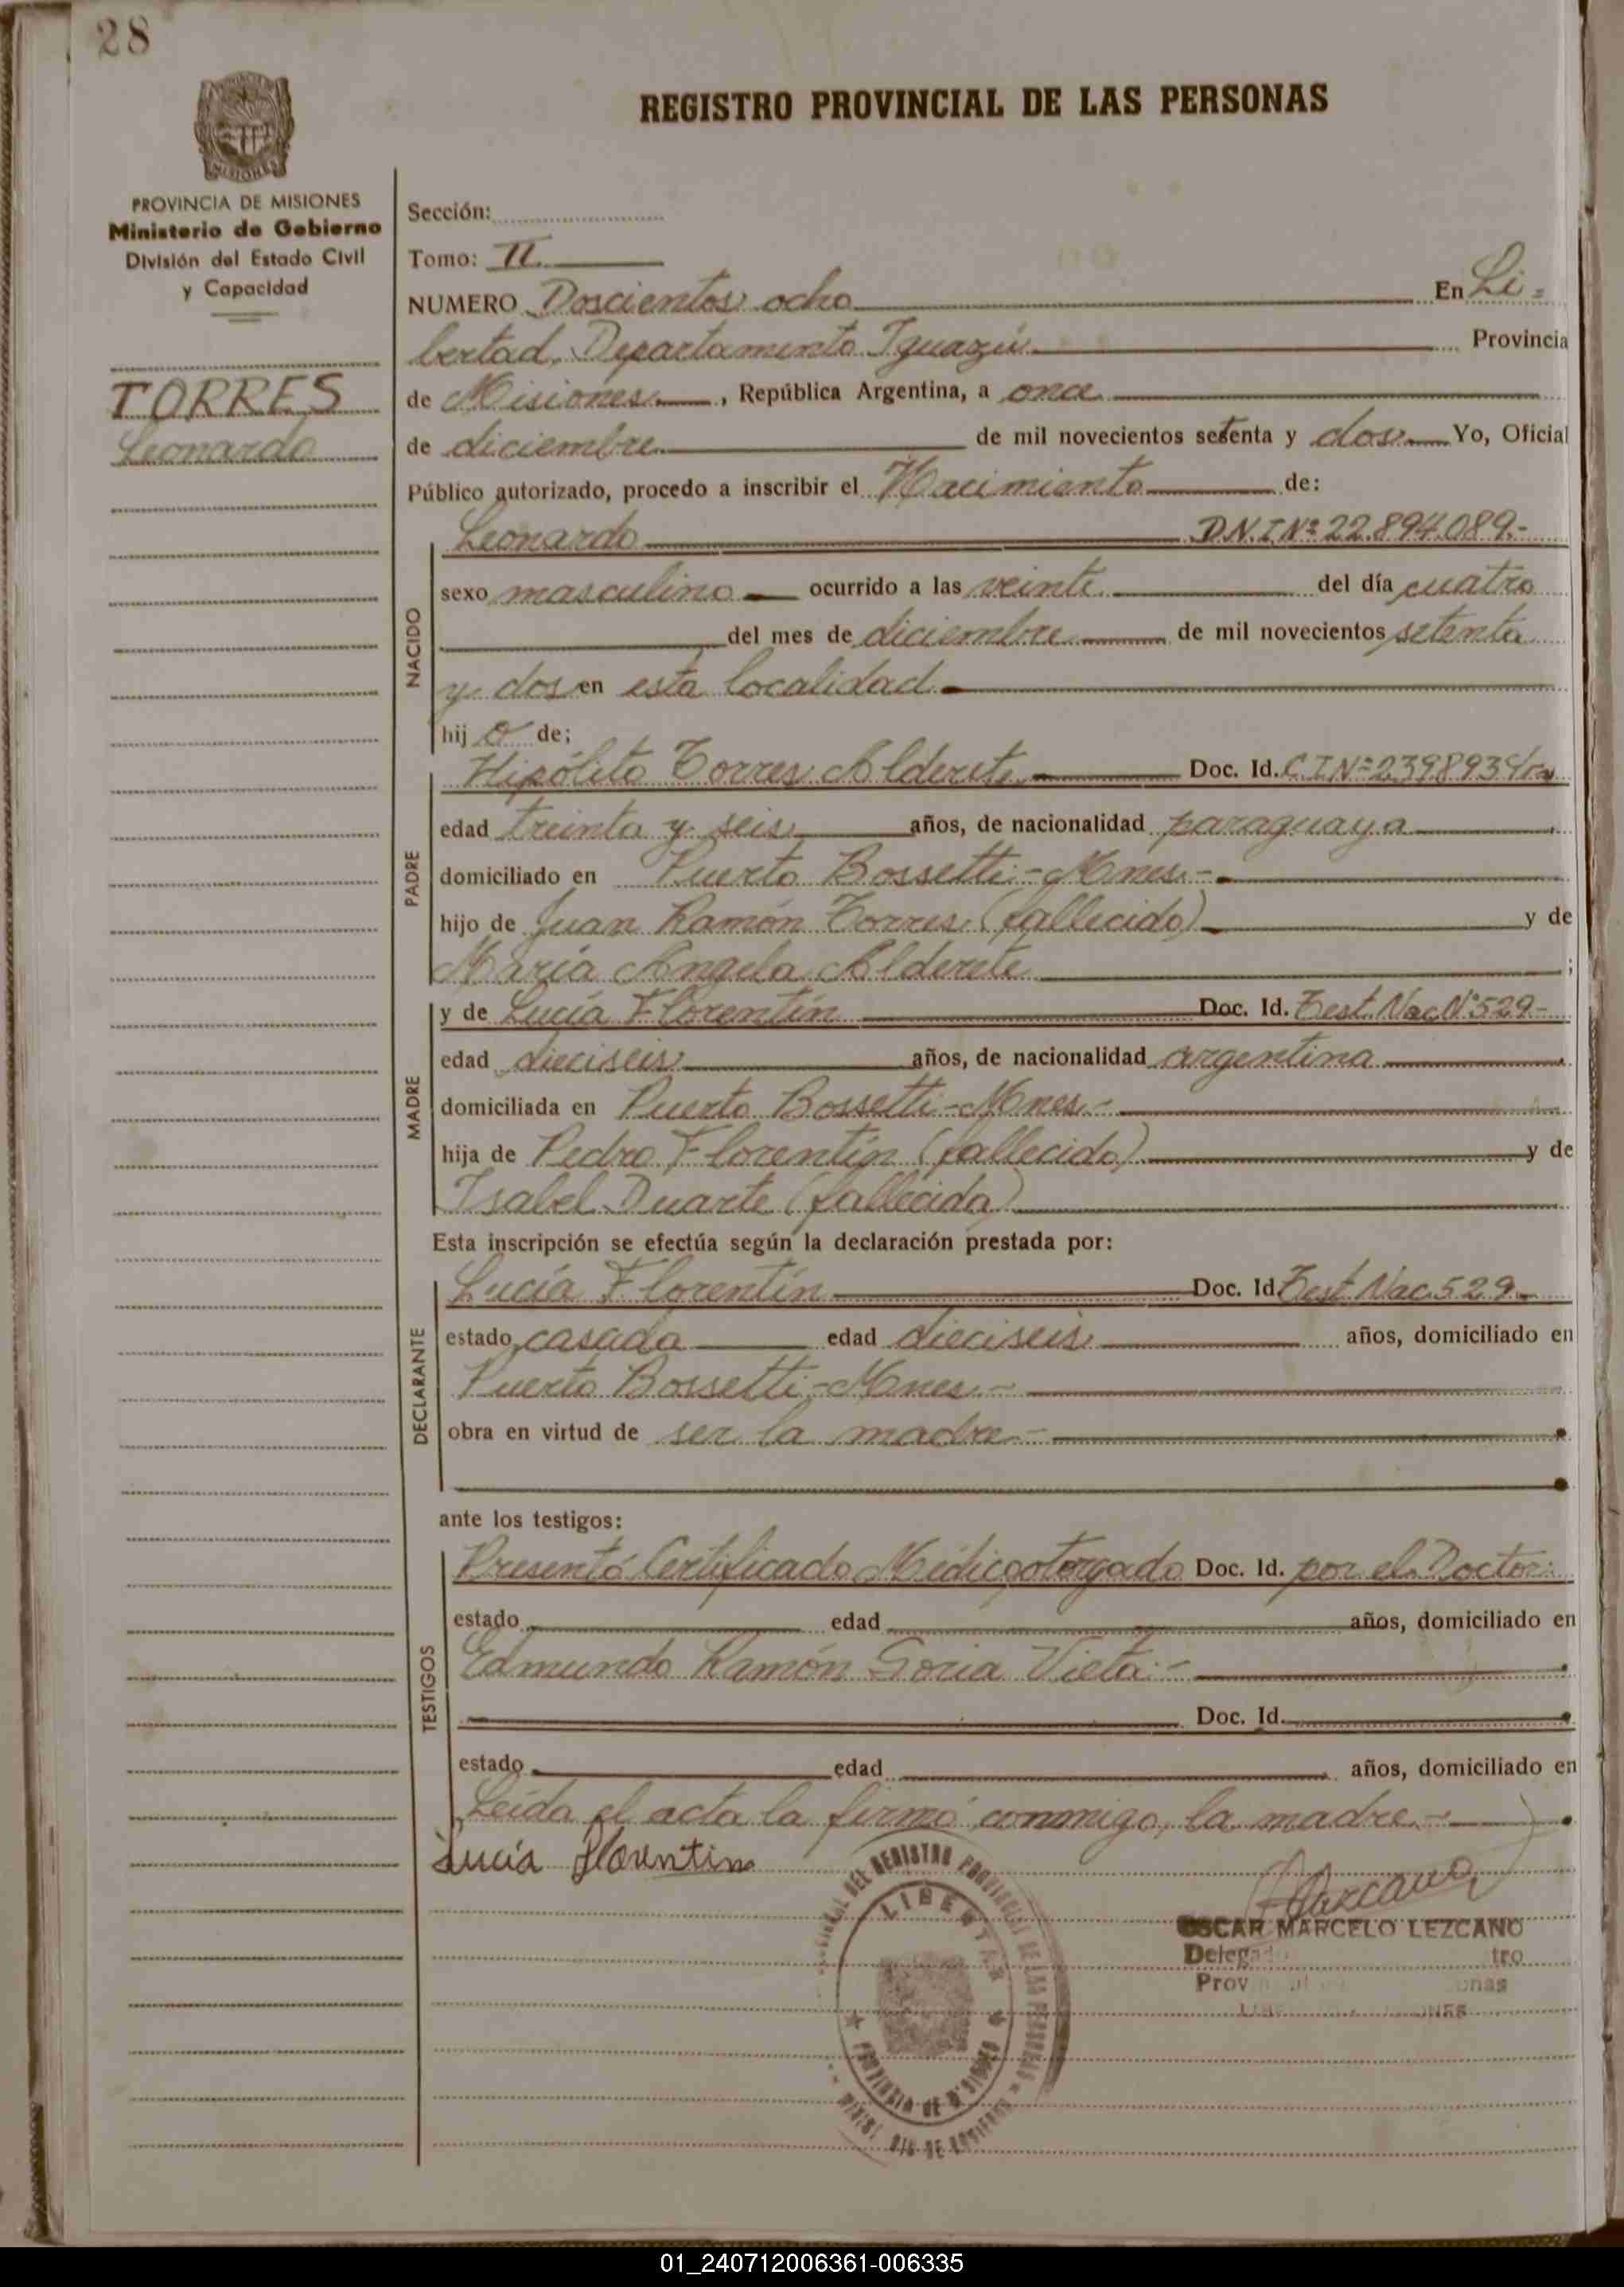 28
REGISTRO PROVINCIAL DE LAS PERSONAS
MISIONES
PROVINCIA DE MISIONES
Ministerio de Gobierno
División del Estado Civil
y Capacidad
TORRES
Leonardo
Sección:
Tomo: II.
NUMERO Doscientos ocho En Li=
bertad, Departamento Iguazú Provincia
de Misiones, República Argentina, a once
de diciembre de mil novecientos setenta y dos Yo, Oficial
Público autorizado, procedo a inscribir el Nacimiento de:
NACIDO
Leonardo D.N.I.Nº 22.894.089.-
sexo masculino ocurrido a las veinte del día cuatro
del mes de diciembre de mil novecientos setenta
y dos en esta localidad.
hijo de;
PADRE
Hipólito Torres Alderete Doc. Id. C.I.Nº 239893
edad treinta y seis años, de nacionalidad paraguaya
domiciliado en Puerto Bossetti-Mnes.-
hijo de Juan Ramón Torres (fallecido) y de
María Angela Alderete ;
MADRE
y de Lucía Florentín Doc. Id. Test. Nac. Nº 529-
edad dieciseis años, de nacionalidad argentina
domiciliada en Puerto Bossetti-Mnes.-
hija de Pedro Florentín (fallecido) y de
Isabel Duarte (fallecida)
Esta inscripción se efectúa según la declaración prestada por:
DECLARANTE
Lucía Florentín Doc. Id. Test. Nac. 529.
estado casada edad dieciseis años, domiciliado en
Puerto Bossetti-Mnes.-
obra en virtud de ser la madre-
ante los testigos:
TESTIGOS
Presentó Certificado Médico otorgado Doc. Id. por el Doctor:
estado edad años, domiciliado en
Edmundo Ramón Soria Vieta.-
Doc. Id.
estado edad años, domiciliado en
Leída el acta la firmó conmigo, la madre.-
Lucía Florentín
DEL REGISTRO PROVINCIAL DE LAS PERSONAS
LIBERTAD
PROVINCIA DE MISIONES
OSCAR MARCELO LEZCANO
01_240712006361-006335